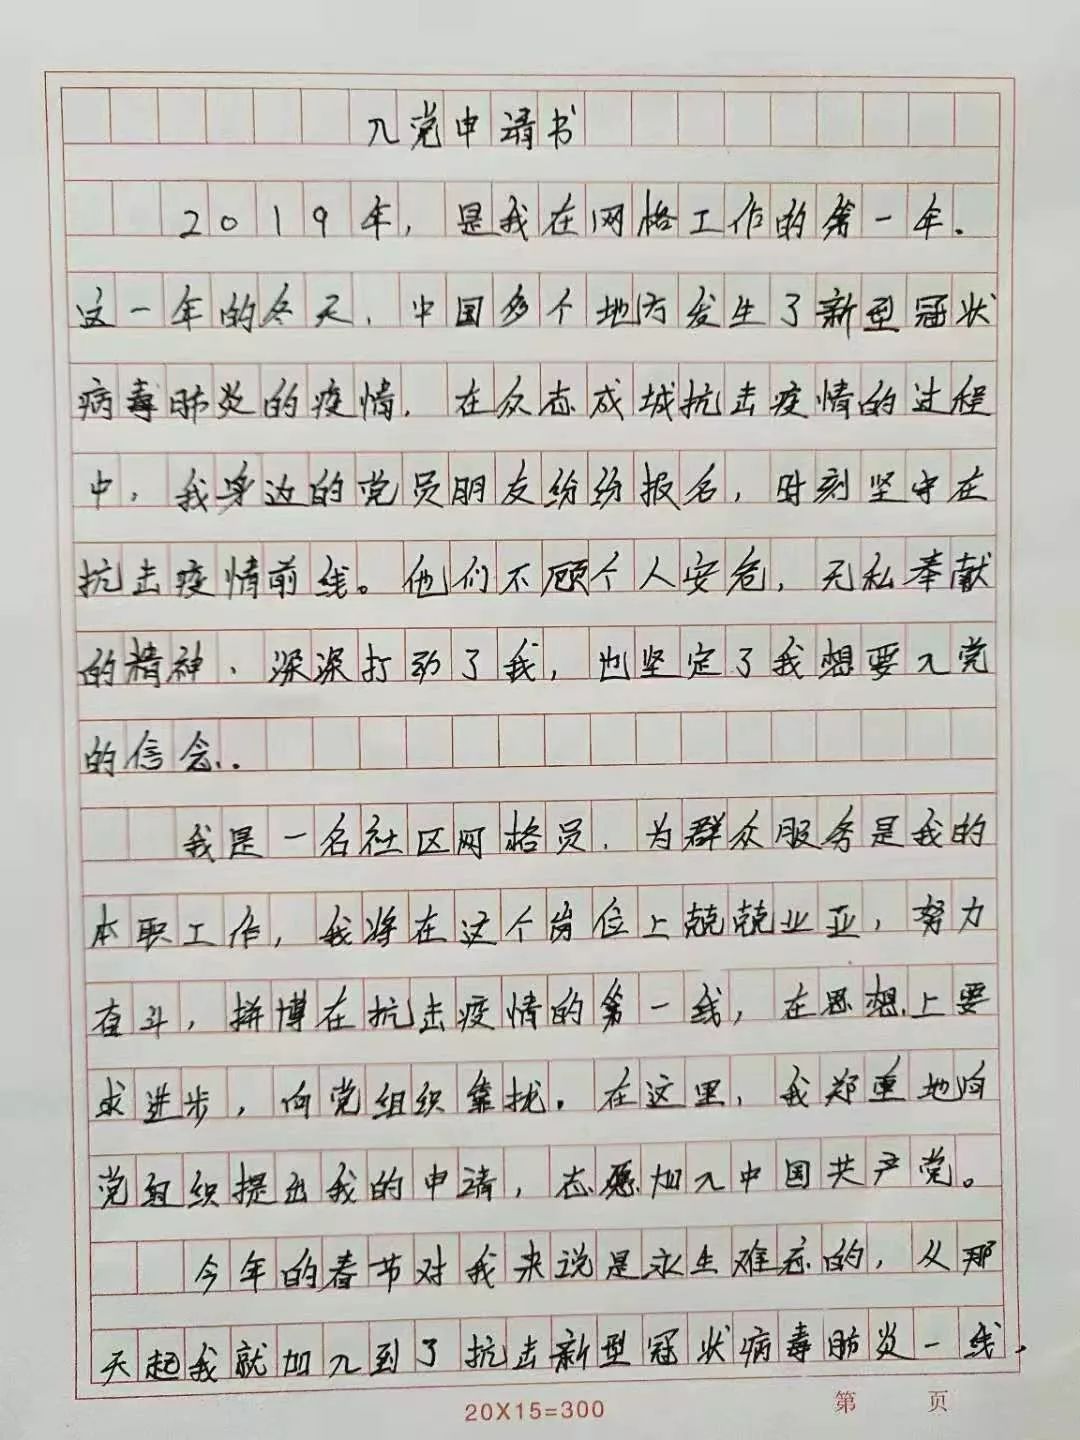 入党申请书
2019年，是我在网格工作的第一年.
这一年的冬天，中国多个地方发生了新型冠状
病毒肺炎的疫情，在众志成城抗击疫情的过程
中，我身边的党员朋友纷纷报名，时刻坚守在
抗击疫情前线。他们不顾个人安危，无私奉献
的精神、深深打动了我，也坚定了我想要入党
的信念.
我是一名社区网格员，为群众服务是我的
本职工作，我将在这个岗位上兢兢业业，努力
奋斗，拼搏在抗击疫情的第一线，在思想上要
求进步，向党组织靠拢。在这里，我郑重地向
党组织提出我的申请，志愿加入中国共产党。
今年的春节对我来说是永生难忘的，从那
天起我就加入到了抗击新型冠状病毒肺炎一线，
20X15=300 第 页